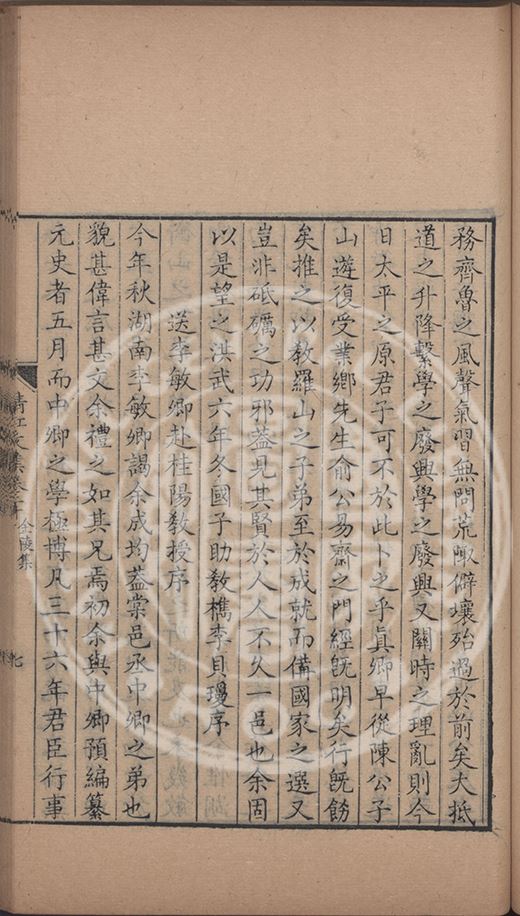 務齊魯之風聲氣習無問荒陬僻壤殆過於前矣大抵
道之升降繫學之廢興學之廢興又關時之理亂則今
日太平之原君子可不於此卜之乎真卿早從陳公子
山遊復受業鄉先生俞公易齋之門經旣明矣行旣飭
矣推之以敎羅山之子弟至於成就而備國家之選又
豈非砥礪之功邪葢見其賢於人人不久一邑也余固
以是望之洪武六年冬國子助敎檇李貝瓊序
送李敏卿赴桂陽敎授序
今年秋湖南李敏卿謁余成均葢棠邑丞中卿之弟也
貌甚偉言甚文余禮之如其兄焉初余與中卿預編纂
元史者五月而中卿之學極博凡三十六年君臣行事
金陵集